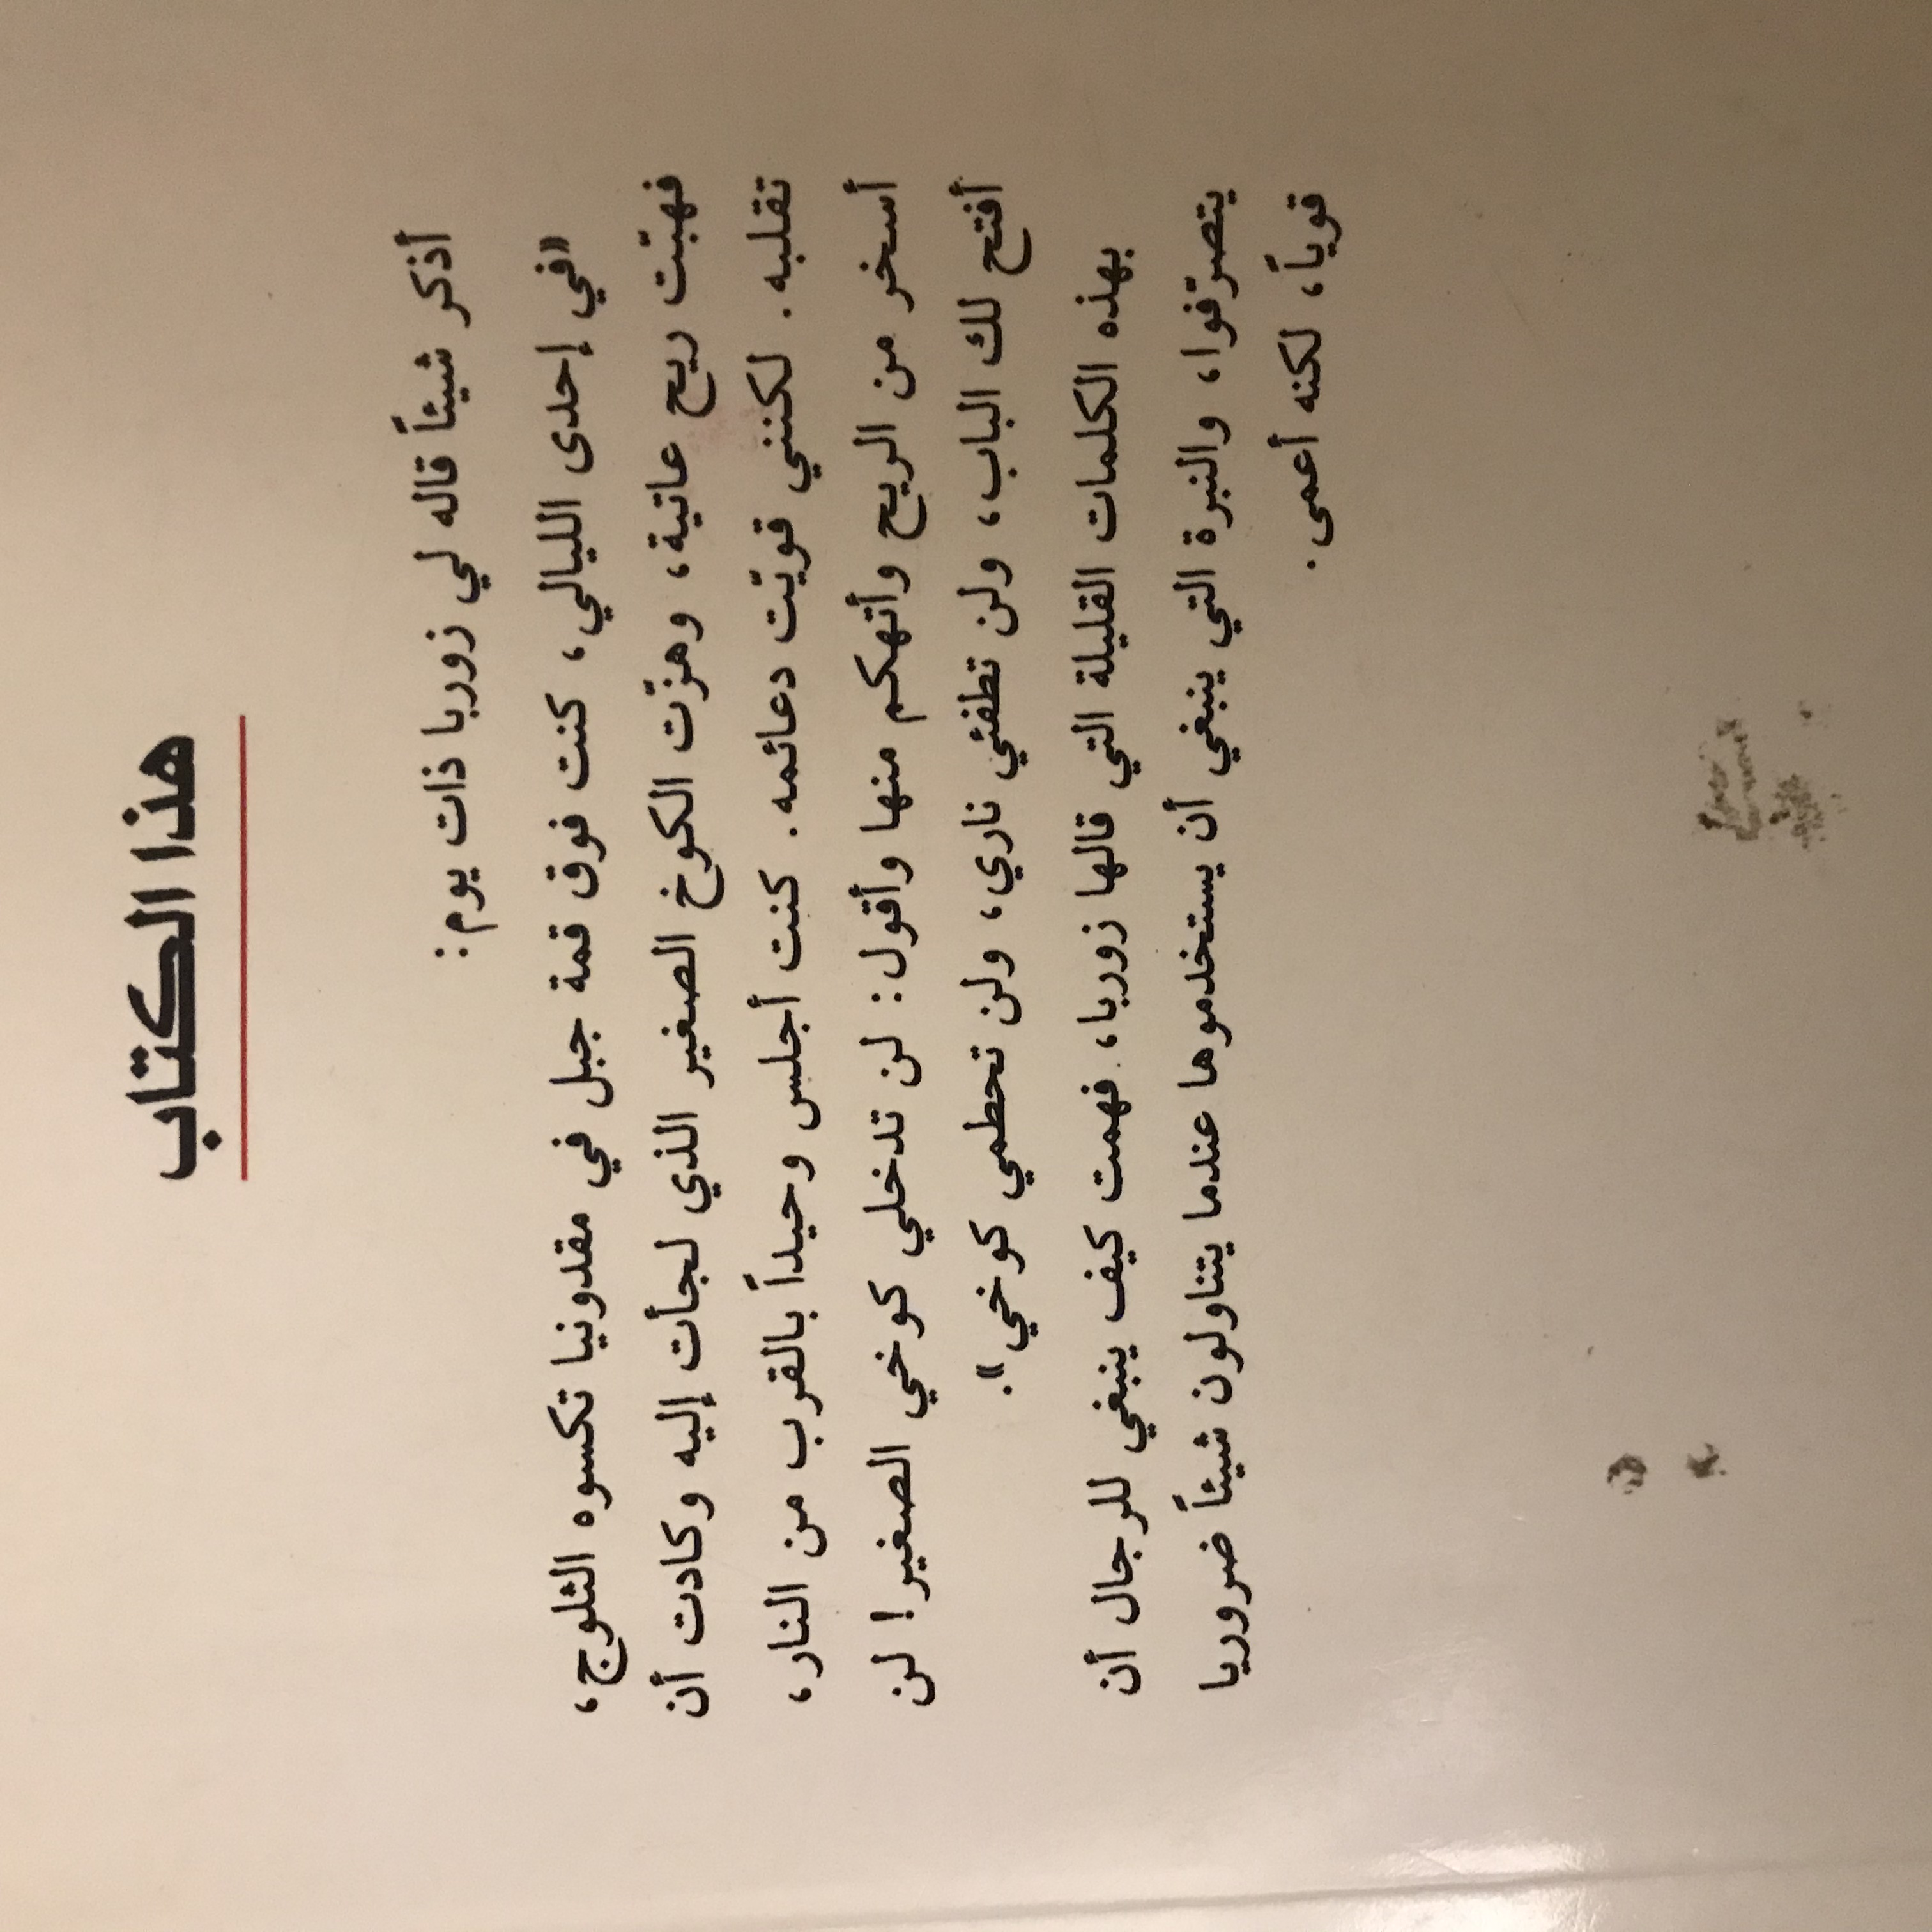 هذا الكتاب
أذكر شيئاً قاله لي زوربا ذات يوم:
«في إحدى الليالي، كنت فوق قمة جبل في مقدونيا تكسوه الثلوج،
فهبّت ريح عاتية، وهزّت الكوخ الصغير الذي لجأت إليه وكادت أن
تقلبه. لكنني قويّت دعائمه. كنت أجلس وحيداً بالقرب من النار،
أسخر من الريح وأتهكم منها وأقول: لن تدخلي كوخي الصغير! لن
أفتح لك الباب، ولن تطفئي ناري، ولن تحطمي كوخي».
بهذه الكلمات القليلة التي قالها زوربا، فهمت كيف ينبغي للرجال أن
يتصرّفوا، والنبرة التي ينبغي أن يستخدموها عندما يتناولون شيئاً ضروريا
قوياً، لكنه أعمى.